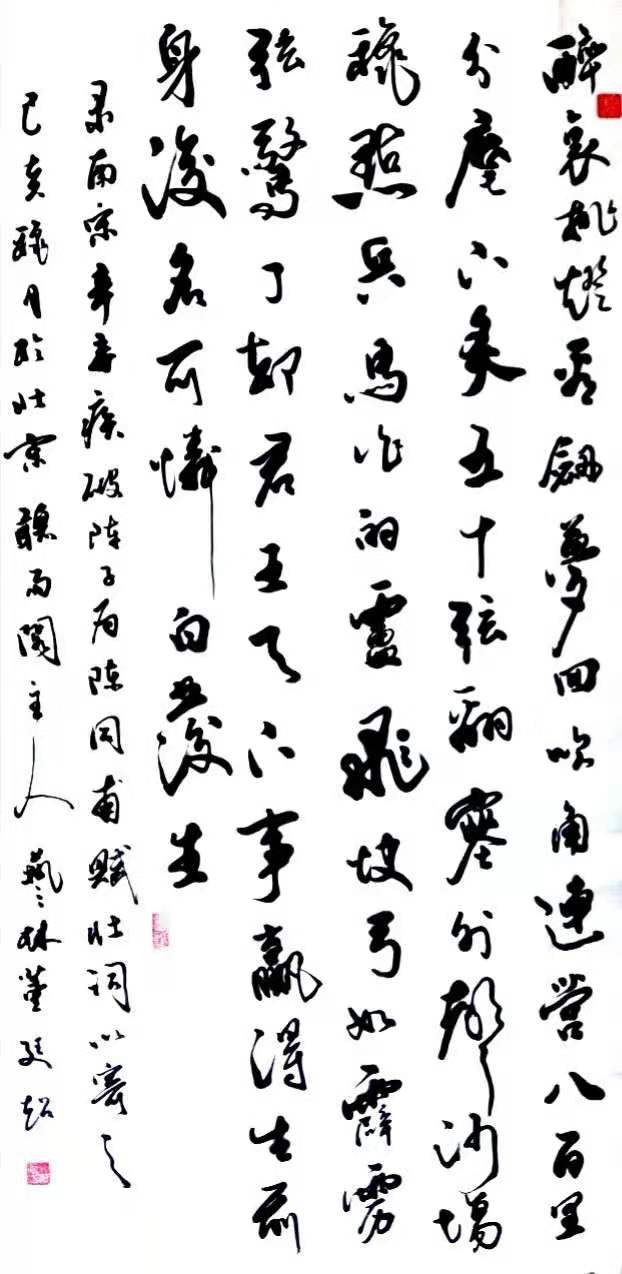 醉裏挑燈看劍夢回吹角連營八百里
分麾下炙五十弦翻塞外聲沙場
秋點兵馬作的盧飛快弓如霹靂
弦驚了却君王天下事贏得生前
身後名可憐白髮生
录南宋辛弃疾破阵子为陈同甫赋壮词以寄之
己亥秋月於北京聽雨閣主人藝林董超